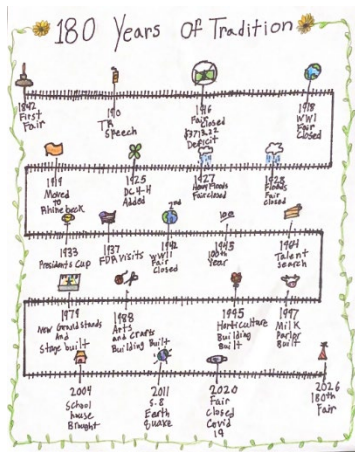 180 Years Of Tradition
1842
First
Fair
1910
TR
Speech
1916
Fair
Closed
Deficit
1918
WWI
Fair
Closed
1919
Moved
to
Rhinebeck
1925
DC 4-H
Added
1927
Heavy Floods
Fair closed
1928
Floods
Fair
closed
1933
Presidents Cup
1937
FDR Visits
2nd
1942
WWII
Fair
Closed
1945
100th
Year
1964
Talent
search
1979
New Grandstands
And
Stage built
1988
Arts
and Crafts
Building Built
1995
Horticulture
Building
Built
1997
Milk
Parlor
Built
2004
School
house
Brought
2011
5.8
Earth
Quake
2020
Fair
closed
Covid
19
2026
180th
Fair